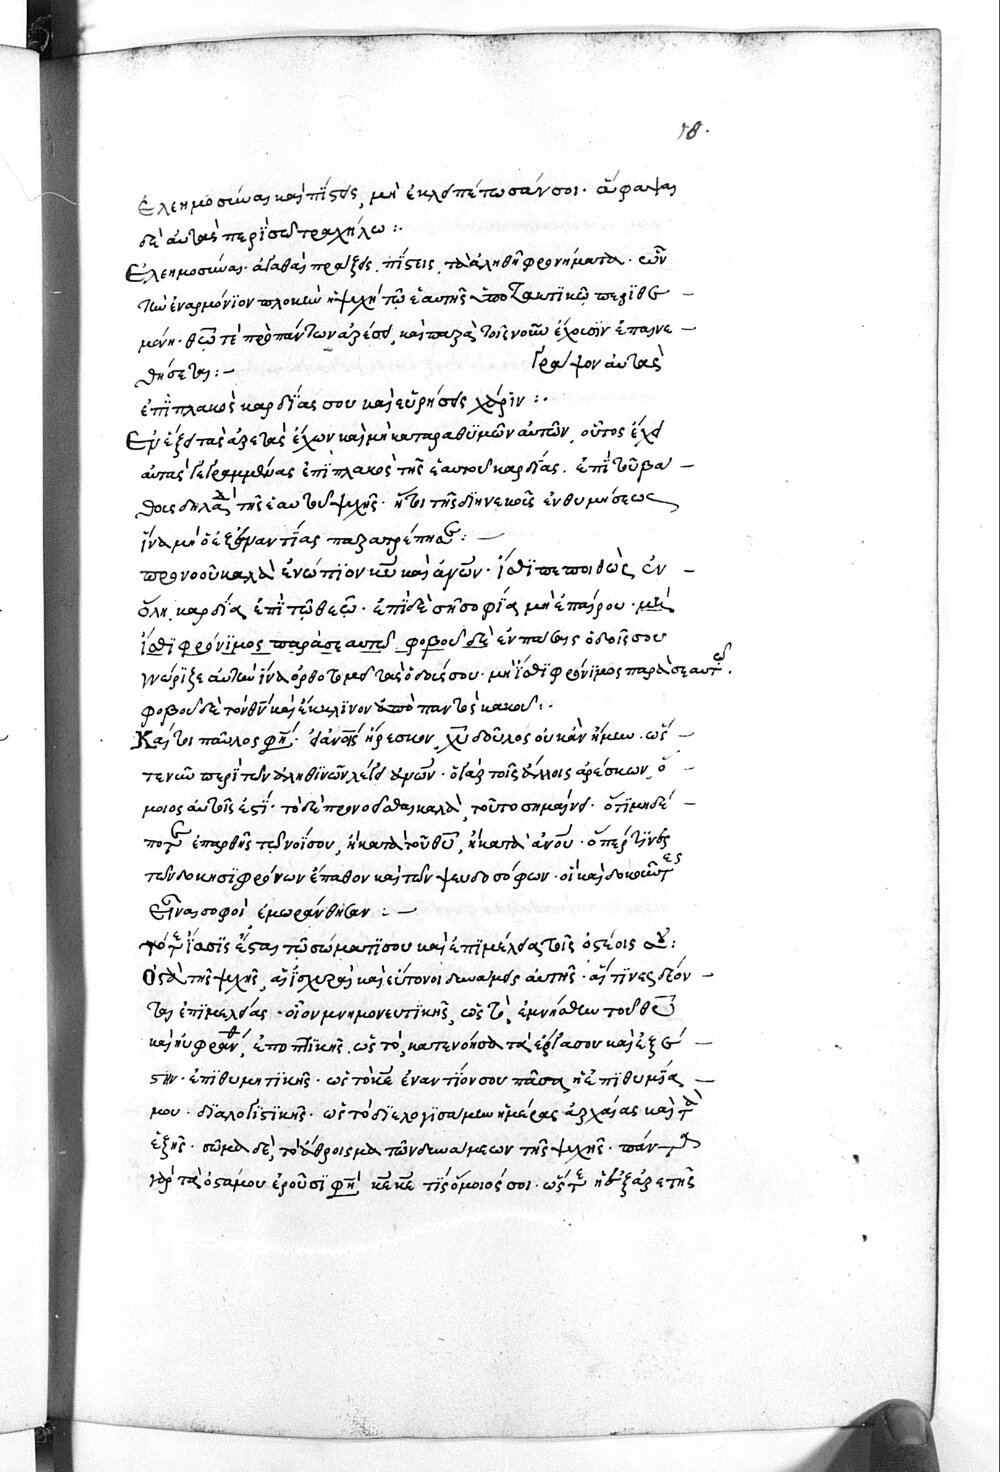 18.
ἐλεημοσύναι καὶ πίστεις μὴ ἐκλειπέτωσάν σοι· ἄφαψαι
δὲ αὐτὰς περὶ σῷ τραχήλω :·
Ἐλεημοσύναι· ἀγαθαὶ πράξεις, πίστεις, τὰ ἀληθῆ φρονήματα· ὧν
τὴν ἐναρμόνιον πλοκὴν ἡ ψυχὴ τῶ ἑαυτῆς ὑποτακτικῶ περιθε –
μένη· θεῶ τὲ πρὸ πάντων ἀρέσει, καὶ παρὰ τοῖς νοῦν ἔχουσιν ἐπαινε –
θήσεται :– Γράψον αὐτὰς
ἐπὶ πλακὸς καρδίας σου καὶ εὑρήσεις χάριν :·
Ἐν ἕξει τὰς ἀρετὰς ἔχων καὶ μὴ καταραθυμῶν αὐτῶν, οὗτος ἔχει
αὐτὰς γεγραμμένας ἐπὶ πλακὸς τῆς ἑαυτοῦ καρδίας. ἐπὶ τοῦ βά –
θους δηλαδὴ τῆς ἑαυτοῦ ψυχῆς· ἤτοι τῆς διηνεκοῦς ἐνθυμήσεως
ἵνα μὴ ὁ ἐξ ἐναντίας παρατρέπηται :–
προνοοῦ καλὰ ἐνώπιον κυ καὶ ἀνων· ἴσθι πεποιθὼς ἐν –
ὅλη καρδία ἐπὶ τῶ θεῶ· ἐπὶ δὲ σῆ σοφία μὴ ἐπαίρου· μὴ
ἴσθι φρόνιμος παρὰ σεαυτῶ φοβοῦ δὲ ἐν πάσαις ὁδοῖς σου
γνώριζε αὐτὴν ἵνα ὀρθοτομεῖ τὰς ὁδούς σου· μὴ ἴσθι φρόνιμος παρὰ σεαυτῶ.
φοβοῦ δὲ τὸν θν καὶ ἔκκλινον ἀπὸ παντὸς κακοῦ :·
Καίτοι παῦλος φησί· εἰ ἀνοις ἤρεσκον, χυ δοῦλος οὐκ ἂν ἤμην· ὥσ –
τε νῦν περὶ τῶν ἀληθινῶν λέγει ἀνων· ὁ γὰρ τοῖς ἄλλοις ἀρέσκων, ὅ –
μοιος αὐτοῖς ἐστί· τὸ δὲ προνοεῖσθαι καλὰ, τοῦτο σημαίνει· ὅτι μηδέ –
ποτε ἐπαρθῆς τῶ νοί σου, ἢ κατὰ τοῦ θυ, ἢ κατὰ ἀνου· ὅπερ τινὲς
τῶν δοκησιφρόνων ἔπαθον καὶ τῶν ψευδοσόφων· οἳ καὶ δοκοῦντες
εἶναι σοφοὶ ἐμωράνθησαν :–
τότε ἴασις ἔσται τῶ σώματί σου καὶ ἐπιμέλεια τοῖς ὀστέοις σου :
Ὀστᾶ τῆς ψυχῆς, αἱ ἰσχυραὶ καὶ εὔτονοι δυνάμεις αὐτῆς· αἵτινες δέον –
ται ἐπιμελείας· οἷον μνημονευτικῆς, ὡς τὸ, ἐμνήσθην τοῦ θυ
καὶ ηὐφράνθην, ἐποπτικῆς, ὡς τὸ, κατενόησα τὰ ἔργα σου καὶ ἐξέ –
στην· ἐπιθυμητικῆς· ὡς τὸ κε ἐναντίον σου πᾶσα ἡ ἐπιθυμία –
μου· διαλογιστικῆς· ὡς τὸ διελογισάμην ἡμέρας ἀρχαίας καὶ τὰ
ἑξῆς· σῶμα δὲ, τὸ ἄθροισμα τῶν δυνάμεων τῆς ψυχῆς· πάντα
γὰρ τὰ ὀστᾶ μου ἐροῦσι φησὶ κε κε τίς ὅμοιός σοι· ὥστε ἡ ἐξ ἀρετῆς